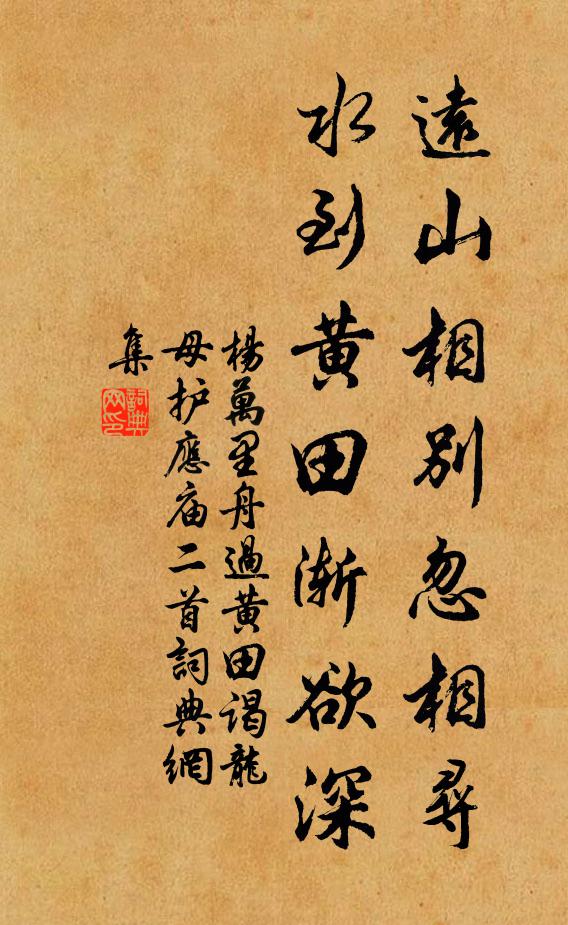 遠山相別忽相尋
水到黃田漸欲深
楊萬里舟過黃田謁龍
母护應庙二首詞典網
集
詞典
网印